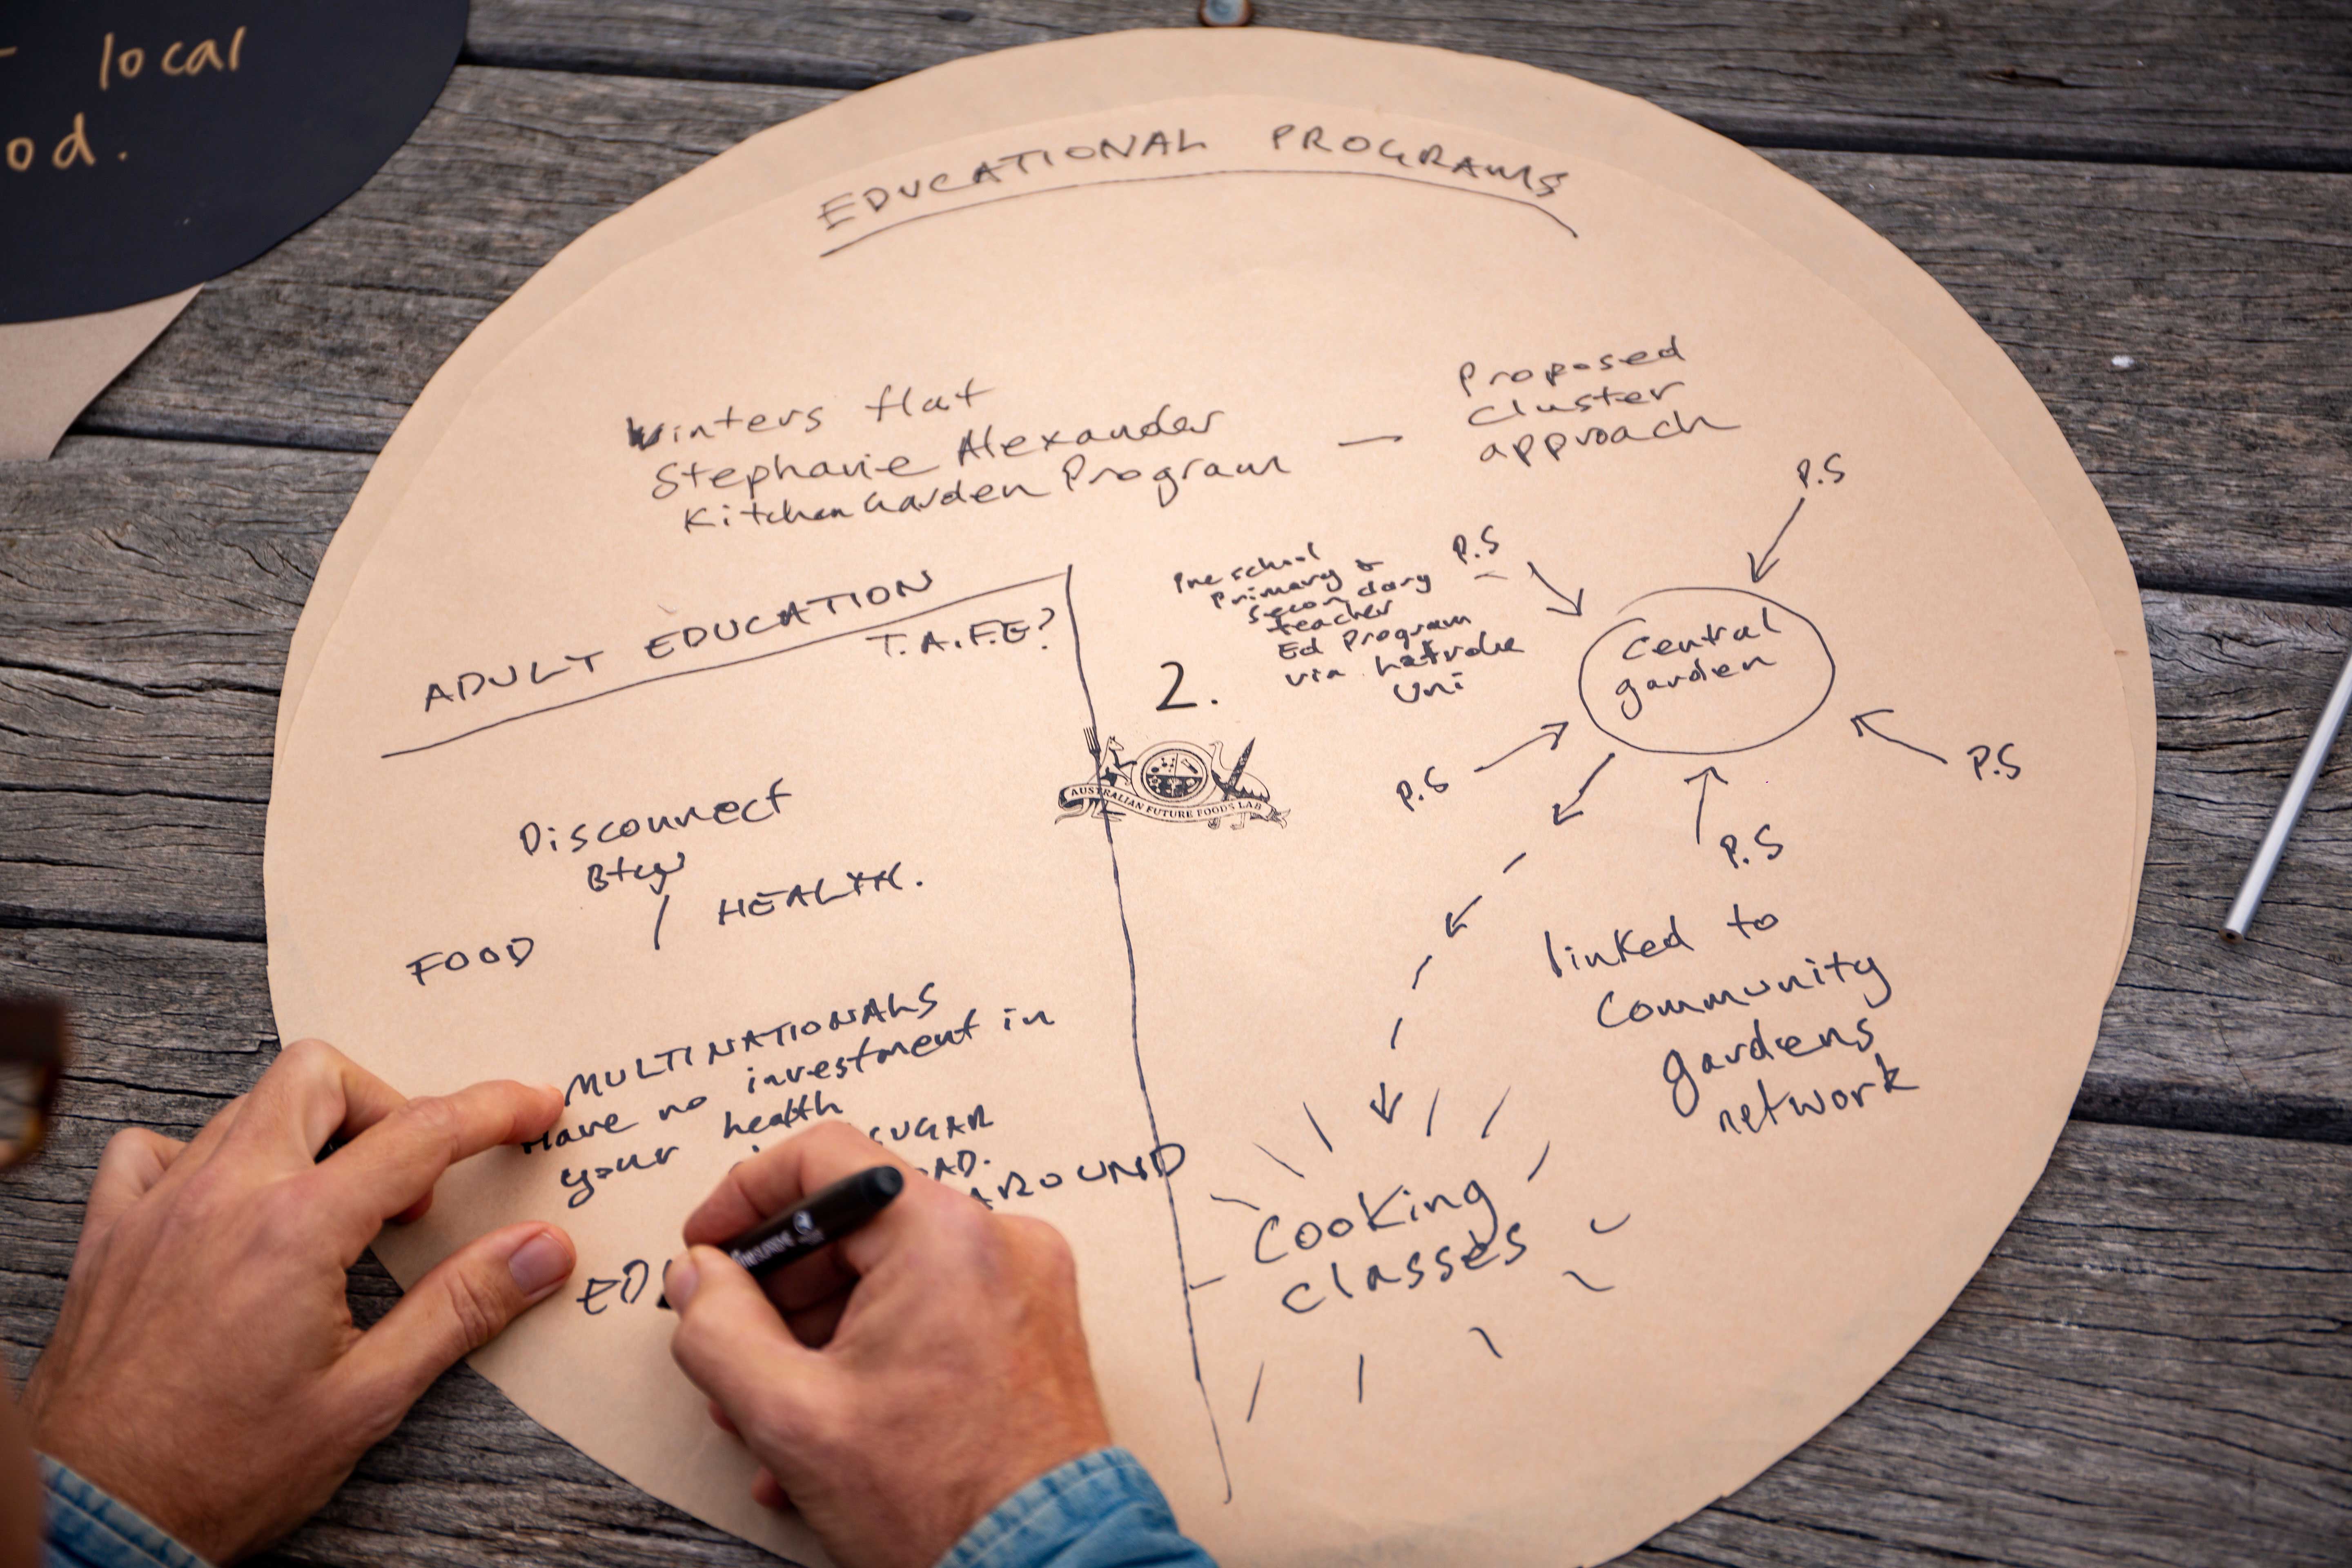 local
od.
EDUCATIONAL PROGRAMS
Winters flat
Stephanie Alexander
Kitchen Garden Program —
Proposed
cluster
approach
ADULT EDUCATION
T.A.F.E?
Disconnect
Btw
FOOD / HEALTH.
MULTINATIONALS
Have no investment in
your health
SUGAR
AD.
AROUND
ED
2.
Preschool
Primary &
Secondary
teacher
Ed Program
via Latrobe
Uni
P.S
P.S
Central
garden
P.S
P.S
P.S
AUSTRALIAN FUTURE FOODS LAB
linked to
Community
gardens
network
Cooking
classes